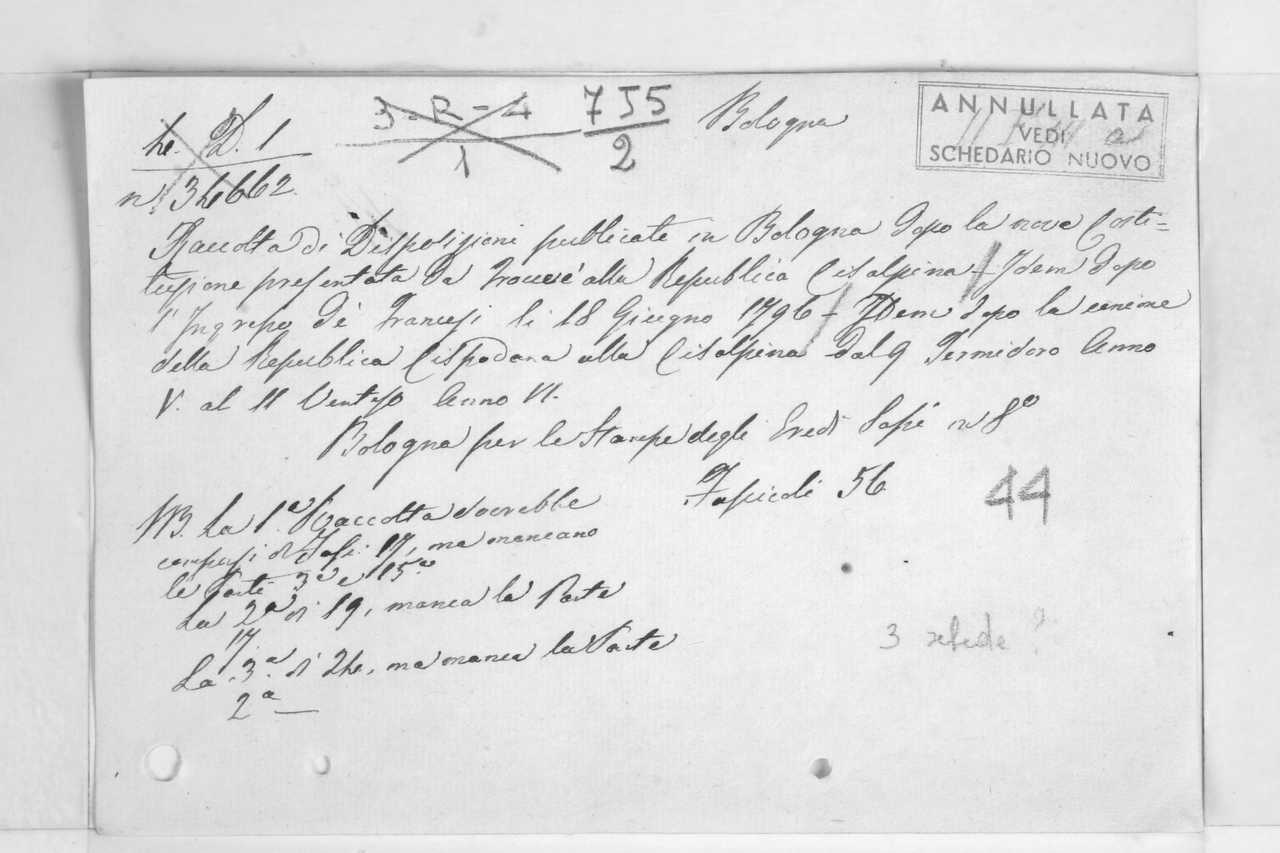 4. D. 1
n. 34662
3-R-4
1
755
2
Bologna
ANNULLATA
VEDI
SCHEDARIO NUOVO
Raccolta di Disposizioni publicate in Bologna dopo la nova Costi=
tuzione presentata da Trouvé alla Republica Cisalpina - Idem dopo
l'Ingresso de' Francesi li 18 Giugno 1796 - IDem dopo la unione
della Republica Cispadana alla Cisalpina dal 9 Termidoro Anno
V. al 11 Ventoso Anno VI.
Bologna per le Stampe degli Eredi Sassi in 8°
Fascicoli 56
44
NB. La 1.a Raccolta dovrebbe
comporsi di Fasc. 17, ma mancano
le Parti 3a e 15a
La 2a di 19, manca la Parte
17.
La 3.a di 24, ma manca la Parte
2a
3 schede?